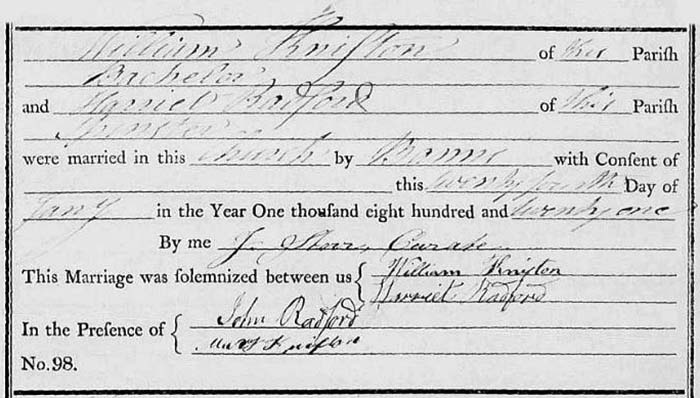 William Knifton of this Parish
Bachelor
and Harriet Radford of this Parish
Spinster
were married in this Church by Banns with Consent of
this twenty fourth Day of
Jany in the Year One thousand eight hundred and twenty one
By me J. Storr, Curate
This Marriage was solemnized between us { William Knifton
Harriet Radford
In the Presence of { John Radford
Knifton
No. 98.